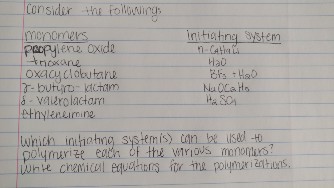 Consider the followings
monomers Initiating system
propylene oxide n-C4H9Li
trioxane H2O
oxacyclobutane BF3 + H2O
γ-butyro-lactam NaOC2H5
δ-valerolactam H2SO4
ethyleneimine
Which initiating system(s) can be used to
polymerize each of the various monomers?
Write chemical equations for the polymerizations.